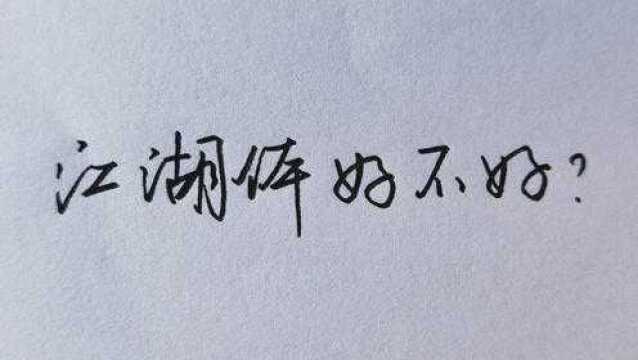 江湖体好不好?